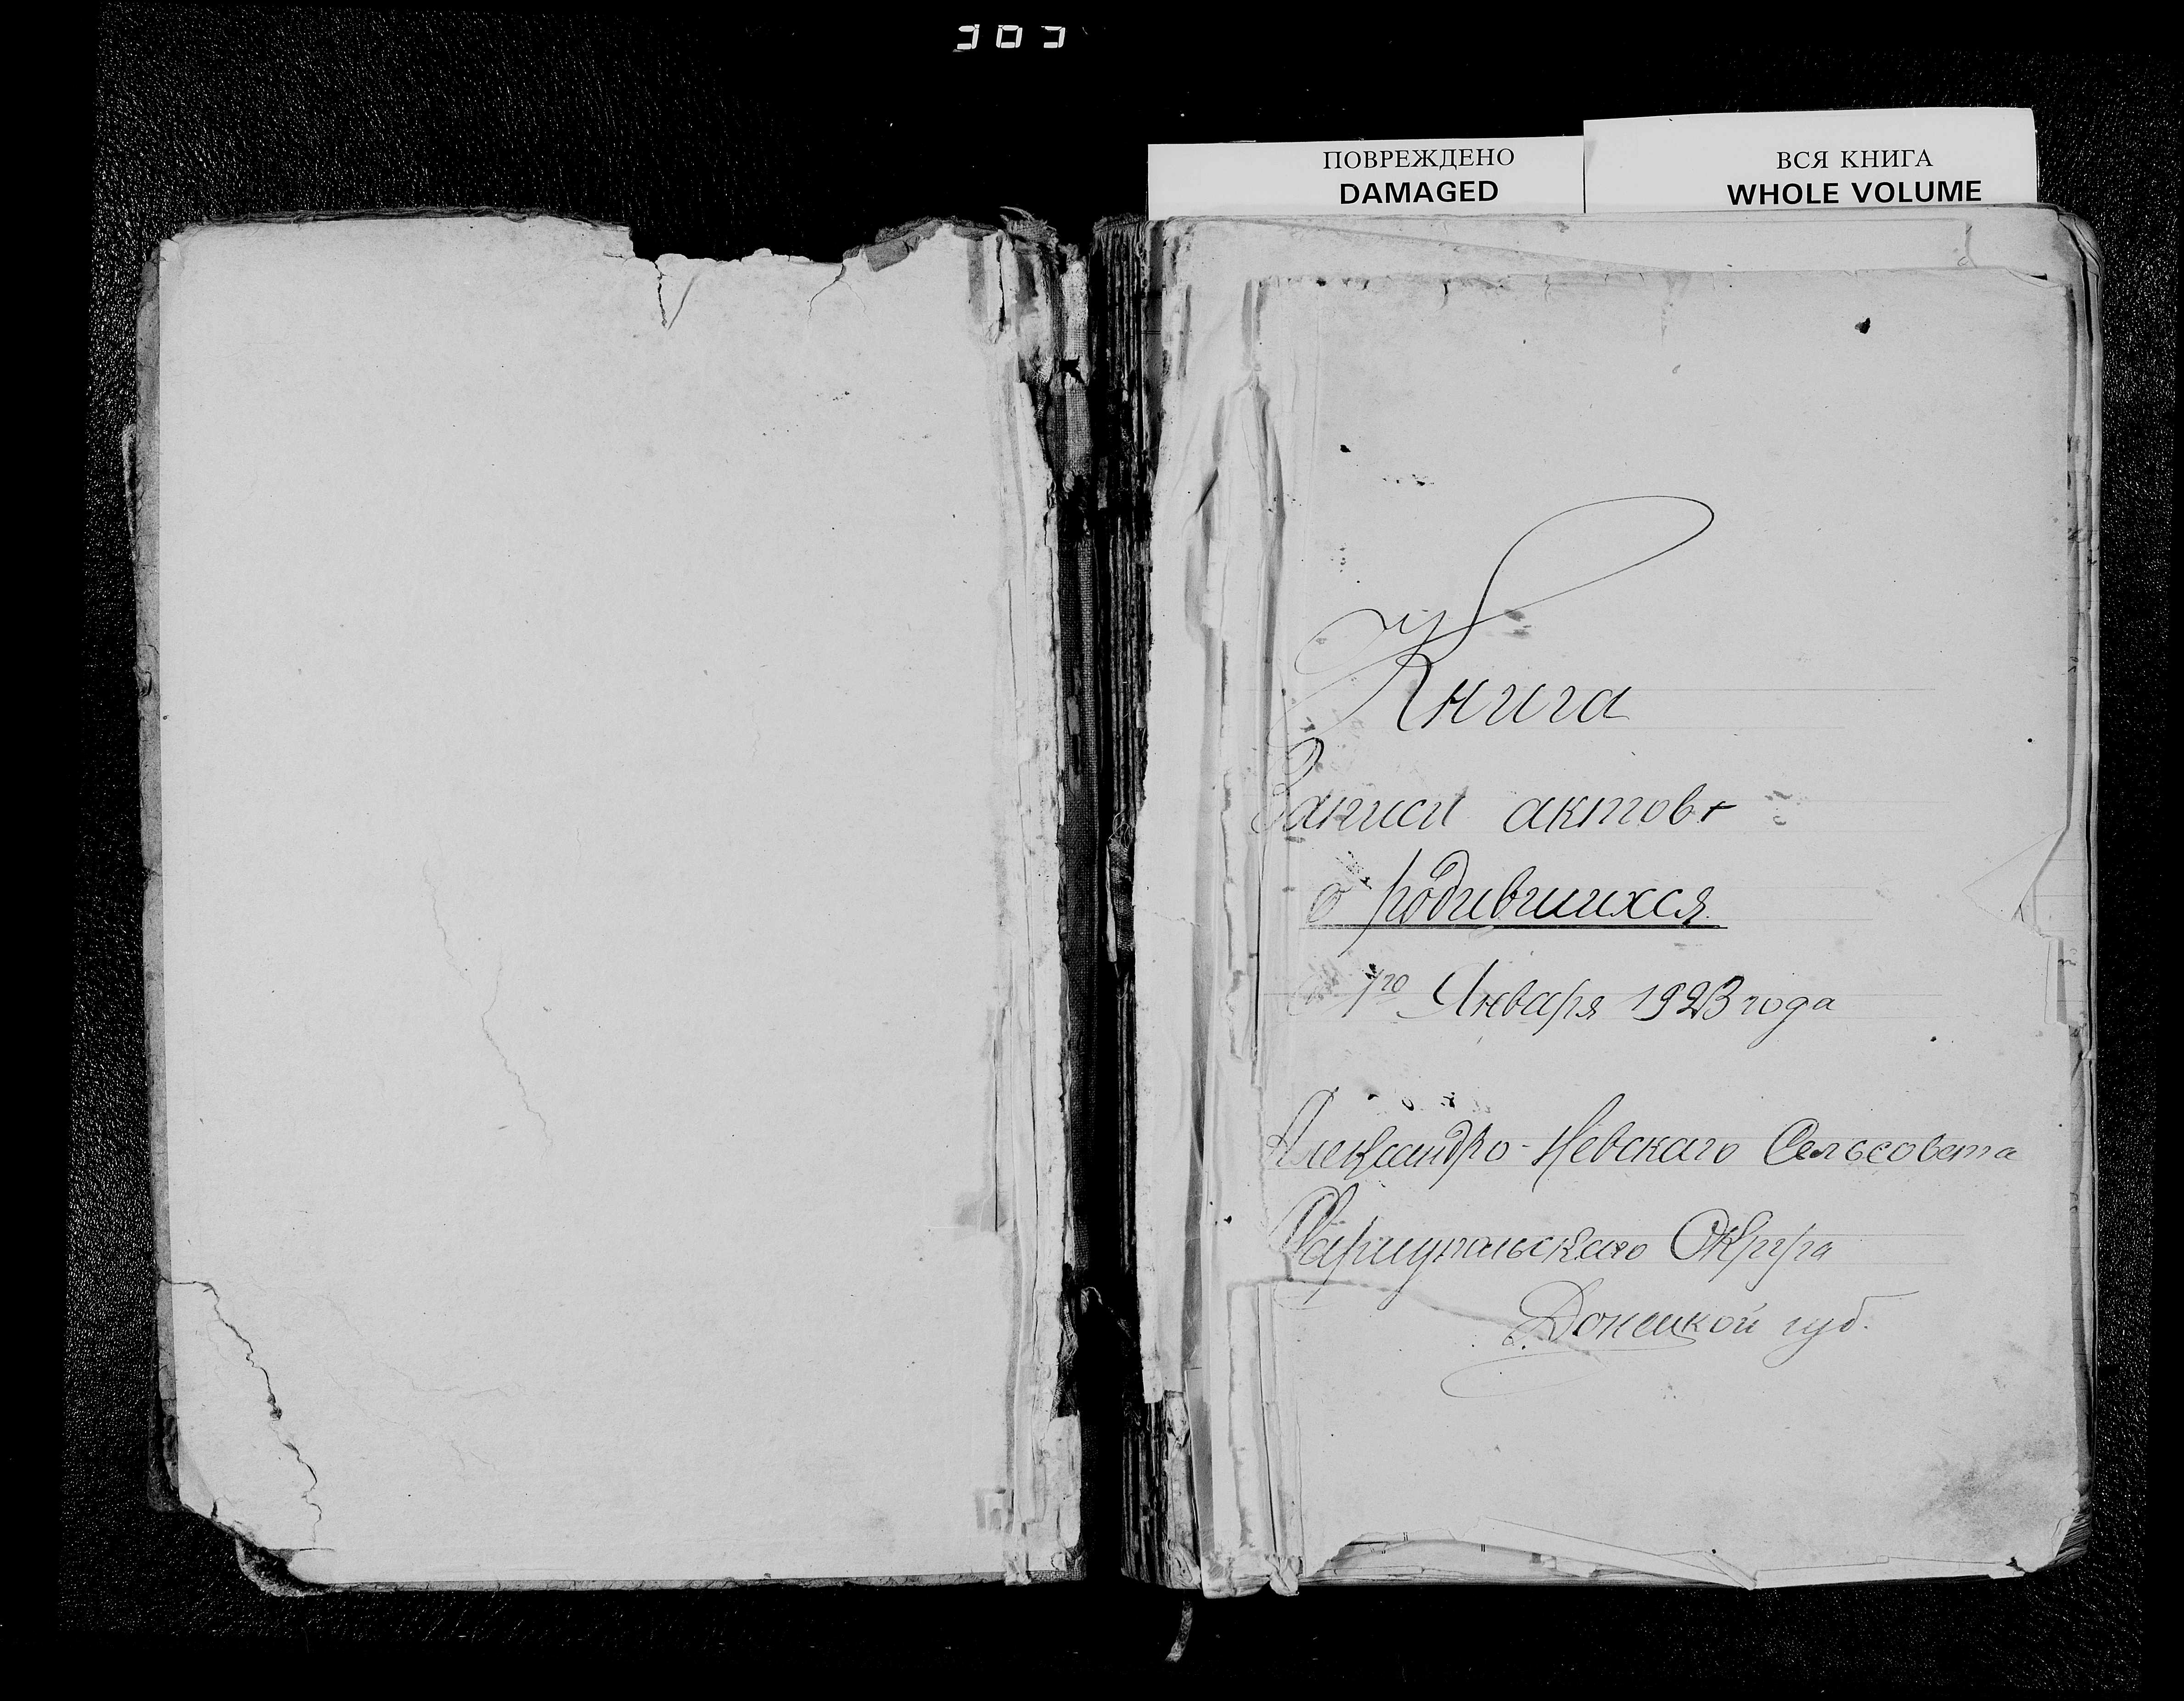 ПОВРЕЖДЕНО
DAMAGED
ВСЯ КНИГА
WHOLE VOLUME
Книга
Записи актов
о родившихся
1го Января 1923 года
Александро-Невскаго Сельсовета
Мариупольскаго Округа
Донецкой губ.